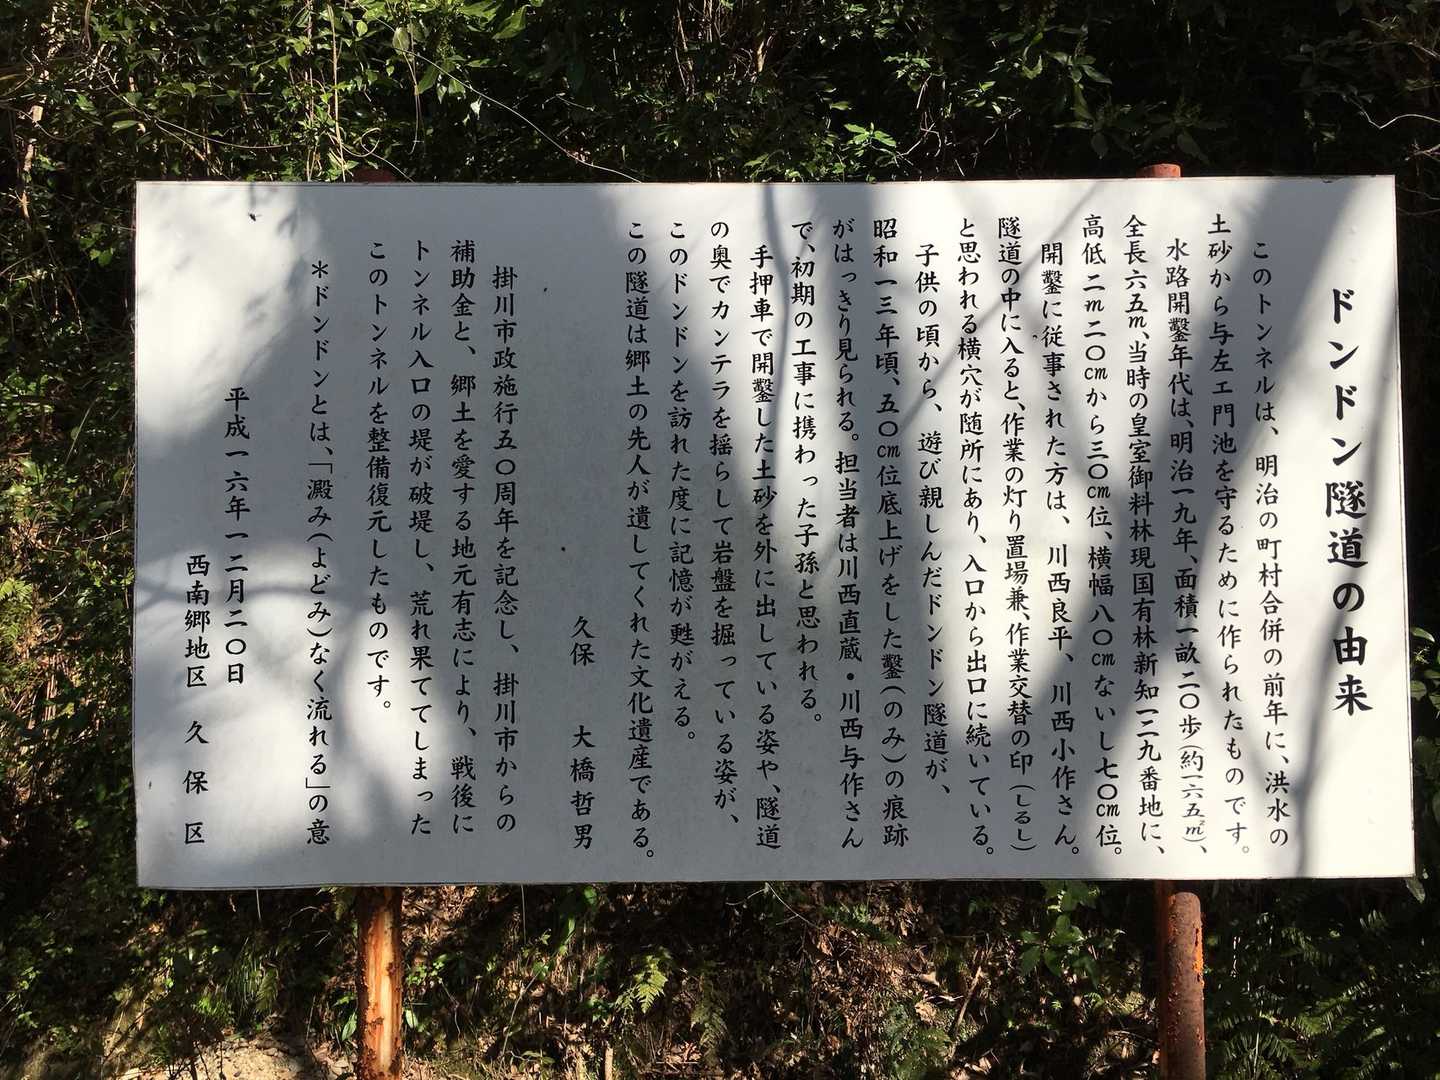 ドンドン隧道の由来
このトンネルは、明治の町村合併の前年に、洪水の
土砂から与左エ門池を守るために作られたものです。
水路開鑿年代は、明治一九年、面積一畝二〇歩(約一六五㎡)、
全長六五m、当時の皇室御料林現国有林新知一二九番地に、
高低二m二〇cmから三〇cm位、横幅八〇cmないし七〇cm位。
開鑿に従事された方は、川西良平、川西小作さん。
隧道の中に入ると、作業の灯り置場兼、作業交替の印(しるし)
と思われる横穴が随所にあり、入口から出口に続いている。
子供の頃から、遊び親しんだドンドン隧道が、
昭和一三年頃、五〇cm位底上げをした鑿(のみ)の痕跡
がはっきり見られる。担当者は川西直蔵・川西与作さん
で、初期の工事に携わった子孫と思われる。
手押車で開鑿した土砂を外に出している姿や、隧道
の奥でカンテラを揺らして岩盤を掘っている姿が、
このドンドンを訪れた度に記憶が甦がえる。
この隧道は郷土の先人が遺してくれた文化遺産である。
久保 大橋哲男
掛川市政施行五〇周年を記念し、掛川市からの
補助金と、郷土を愛する地元有志により、戦後に
トンネル入口の堤が破堤し、荒れ果ててしまった
このトンネルを整備復元したものです。
＊ドンドンとは、「澱み(よどみ)なく流れる」の意
平成一六年一二月二〇日
西南郷地区 久保区